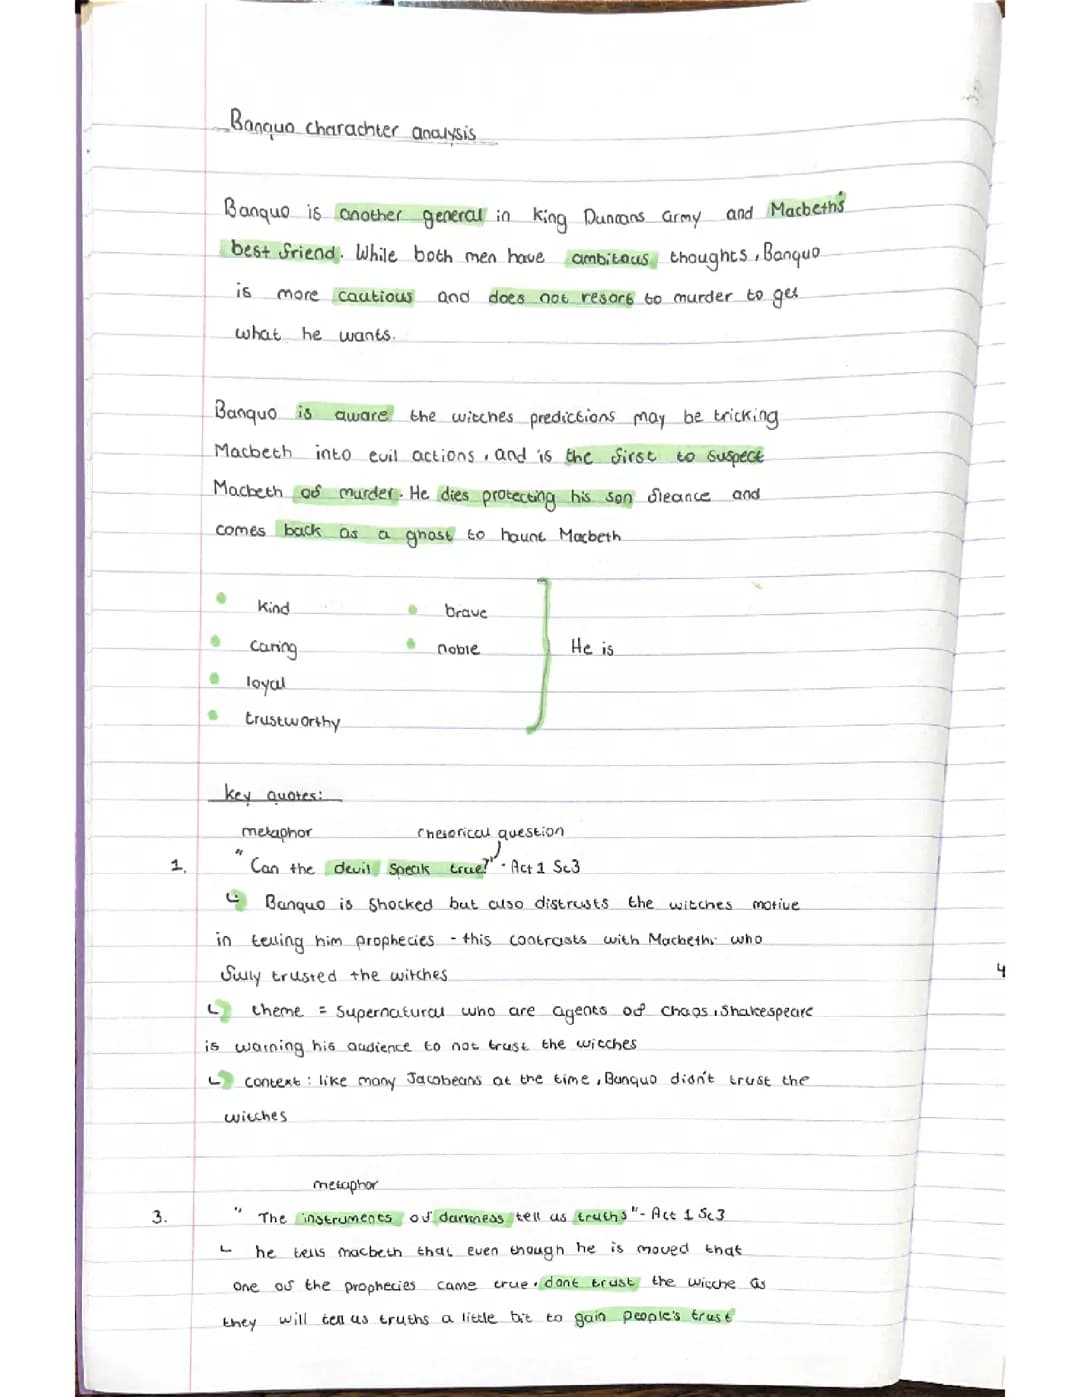 Banquo charachter analysis
Banquo is another general in King Duncans army and Macbeth's
best friend. While both men have ambitous thoughts, Banquo
is more cautious and does not resort to murder to get
what he wants.
Banquo is aware the witches predictions may be tricking
Macbeth into evil actions, and is the first to suspect
Macbeth of murder. He dies protecting his son fleance and
comes back as a ghost to haunt Macbeth
kind brave
caring noble He is
loyal
trustworthy
key quotes:
metaphor rhetorical question
1. "Can the devil speak true?" - Act 1 Sc3
Banquo is shocked but also distrusts the witches motive
in telling him prophecies - this contrasts with Macbeth who
fully trusted the witches
theme = Supernatural who are agents of chaos, Shakespeare
is warning his audience to not trust the witches
context: like many Jacobeans at the time, Banquo didn't trust the
witches
4
metaphor
3. "The instruments of darkness tell us truths" - Act 1 Sc3
he tells macbeth that even though he is moved that
one of the prophecies came true, dont trust the witche as
they will tell us truths a little bit to gain people's trust